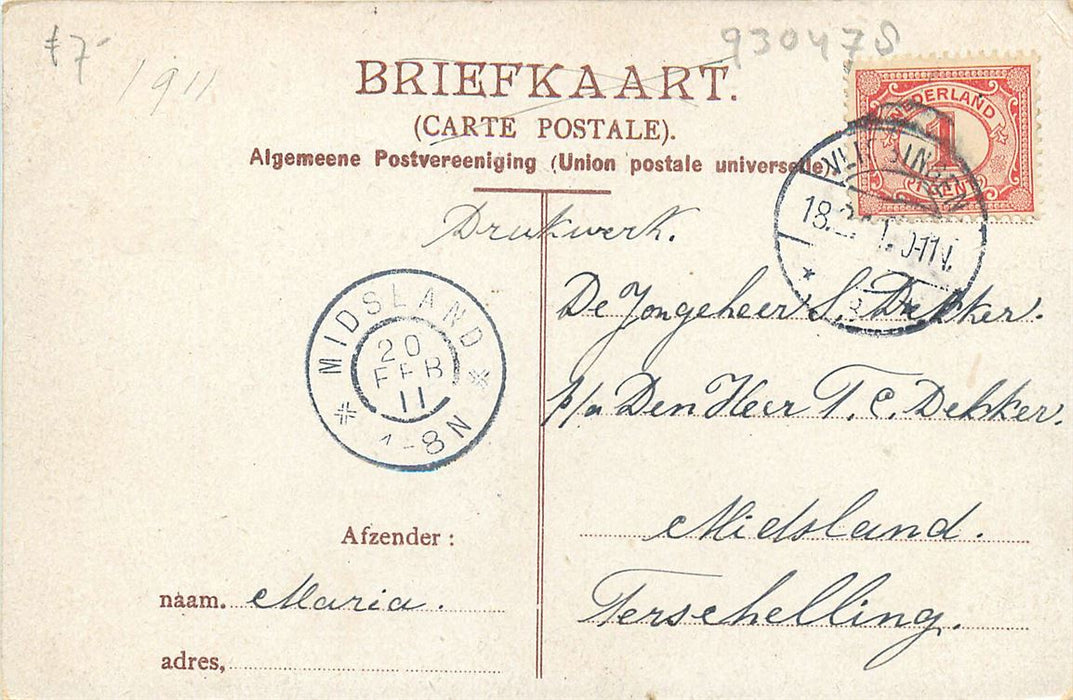 f 7-
1911
930478
BRIEFKAART.
(CARTE POSTALE).
Algemeene Postvereeniging (Union postale universelle)
NEDERLAND
1
CENT
VLISSINGEN
18.2. 11N.
Drukwerk.
De Jongeheer S. Dekker.
p/a Den Heer T. C. Dekker.
Midsland.
Terschelling.
MIDSLAND
20
FEB
11
-8N
Afzender :
naam. Maria.
adres,